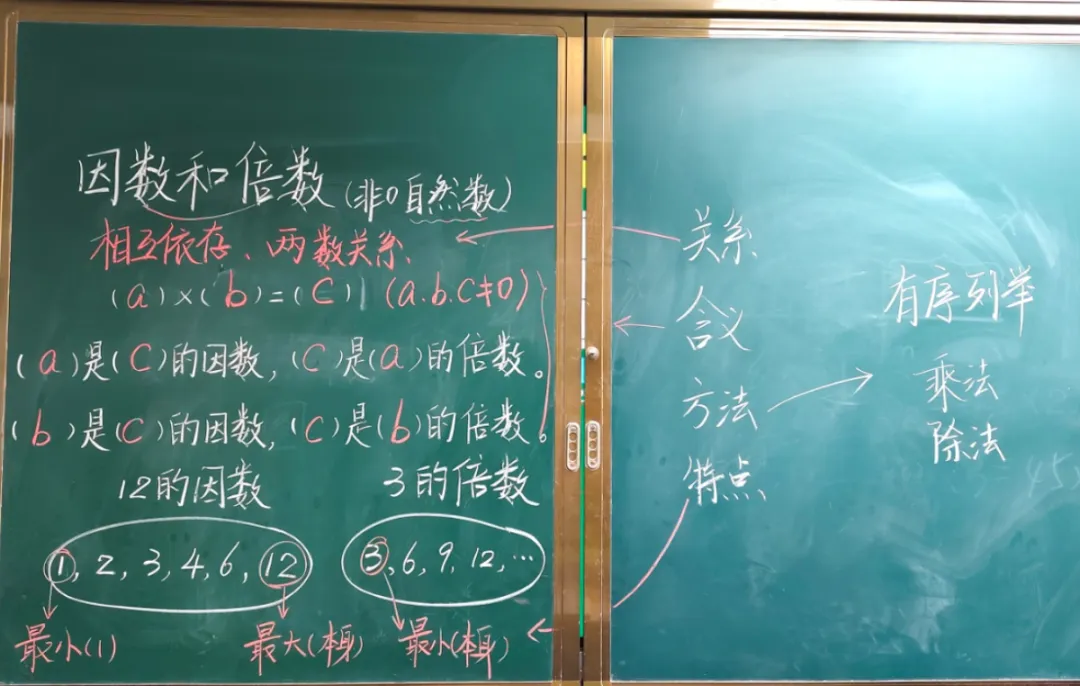 因数和倍数(非0自然数)
相互依存、两数关系
(a)×(b)=(c) (a.b.c≠0)
(a)是(c)的因数,(c)是(a)的倍数。
(b)是(c)的因数,(c)是(b)的倍数。
12的因数 3的倍数
1,2,3,4,6,12 3,6,9,12,…
最小(1) 最大(本身) 最小(本身)
关系
含义
方法
特点
有序列举
乘法
除法